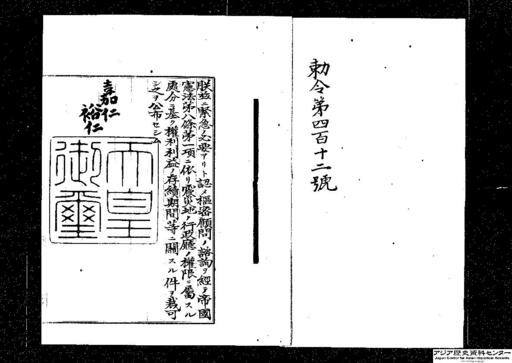 勅令第四百十二號
朕茲ニ緊急ノ必要アリト認メ樞密顧問ノ諮詢ヲ經テ帝國
憲法第八條第一項ニ依リ震災地ノ行政廳ノ權限ニ屬スル
處分ニ基ク權利利益ノ存續期間等ニ關スル件ヲ裁可シ
之ヲ公布セシム
嘉仁
裕仁
天皇
御璽
アジア歴史資料センター
Japan Center for Asian Historical Records